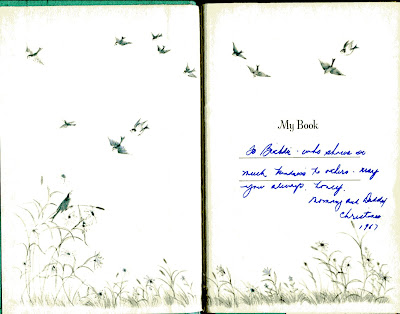 My Book
To - who shows so
much kindness to others - may
you always, Honey.
Mommy and Daddy
Christmas
1967